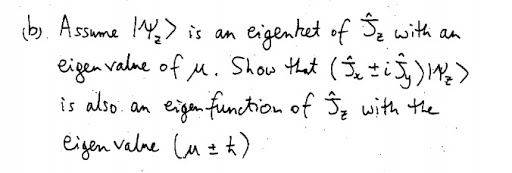 (b). Assume |Ψ_z> is an eigenket of Ĵ_z with an
eigenvalue of μ. Show that (Ĵ_x ± iĴ_y)|Ψ_z>
is also an eigenfunction of Ĵ_z with the
eigenvalue (μ ± ħ)